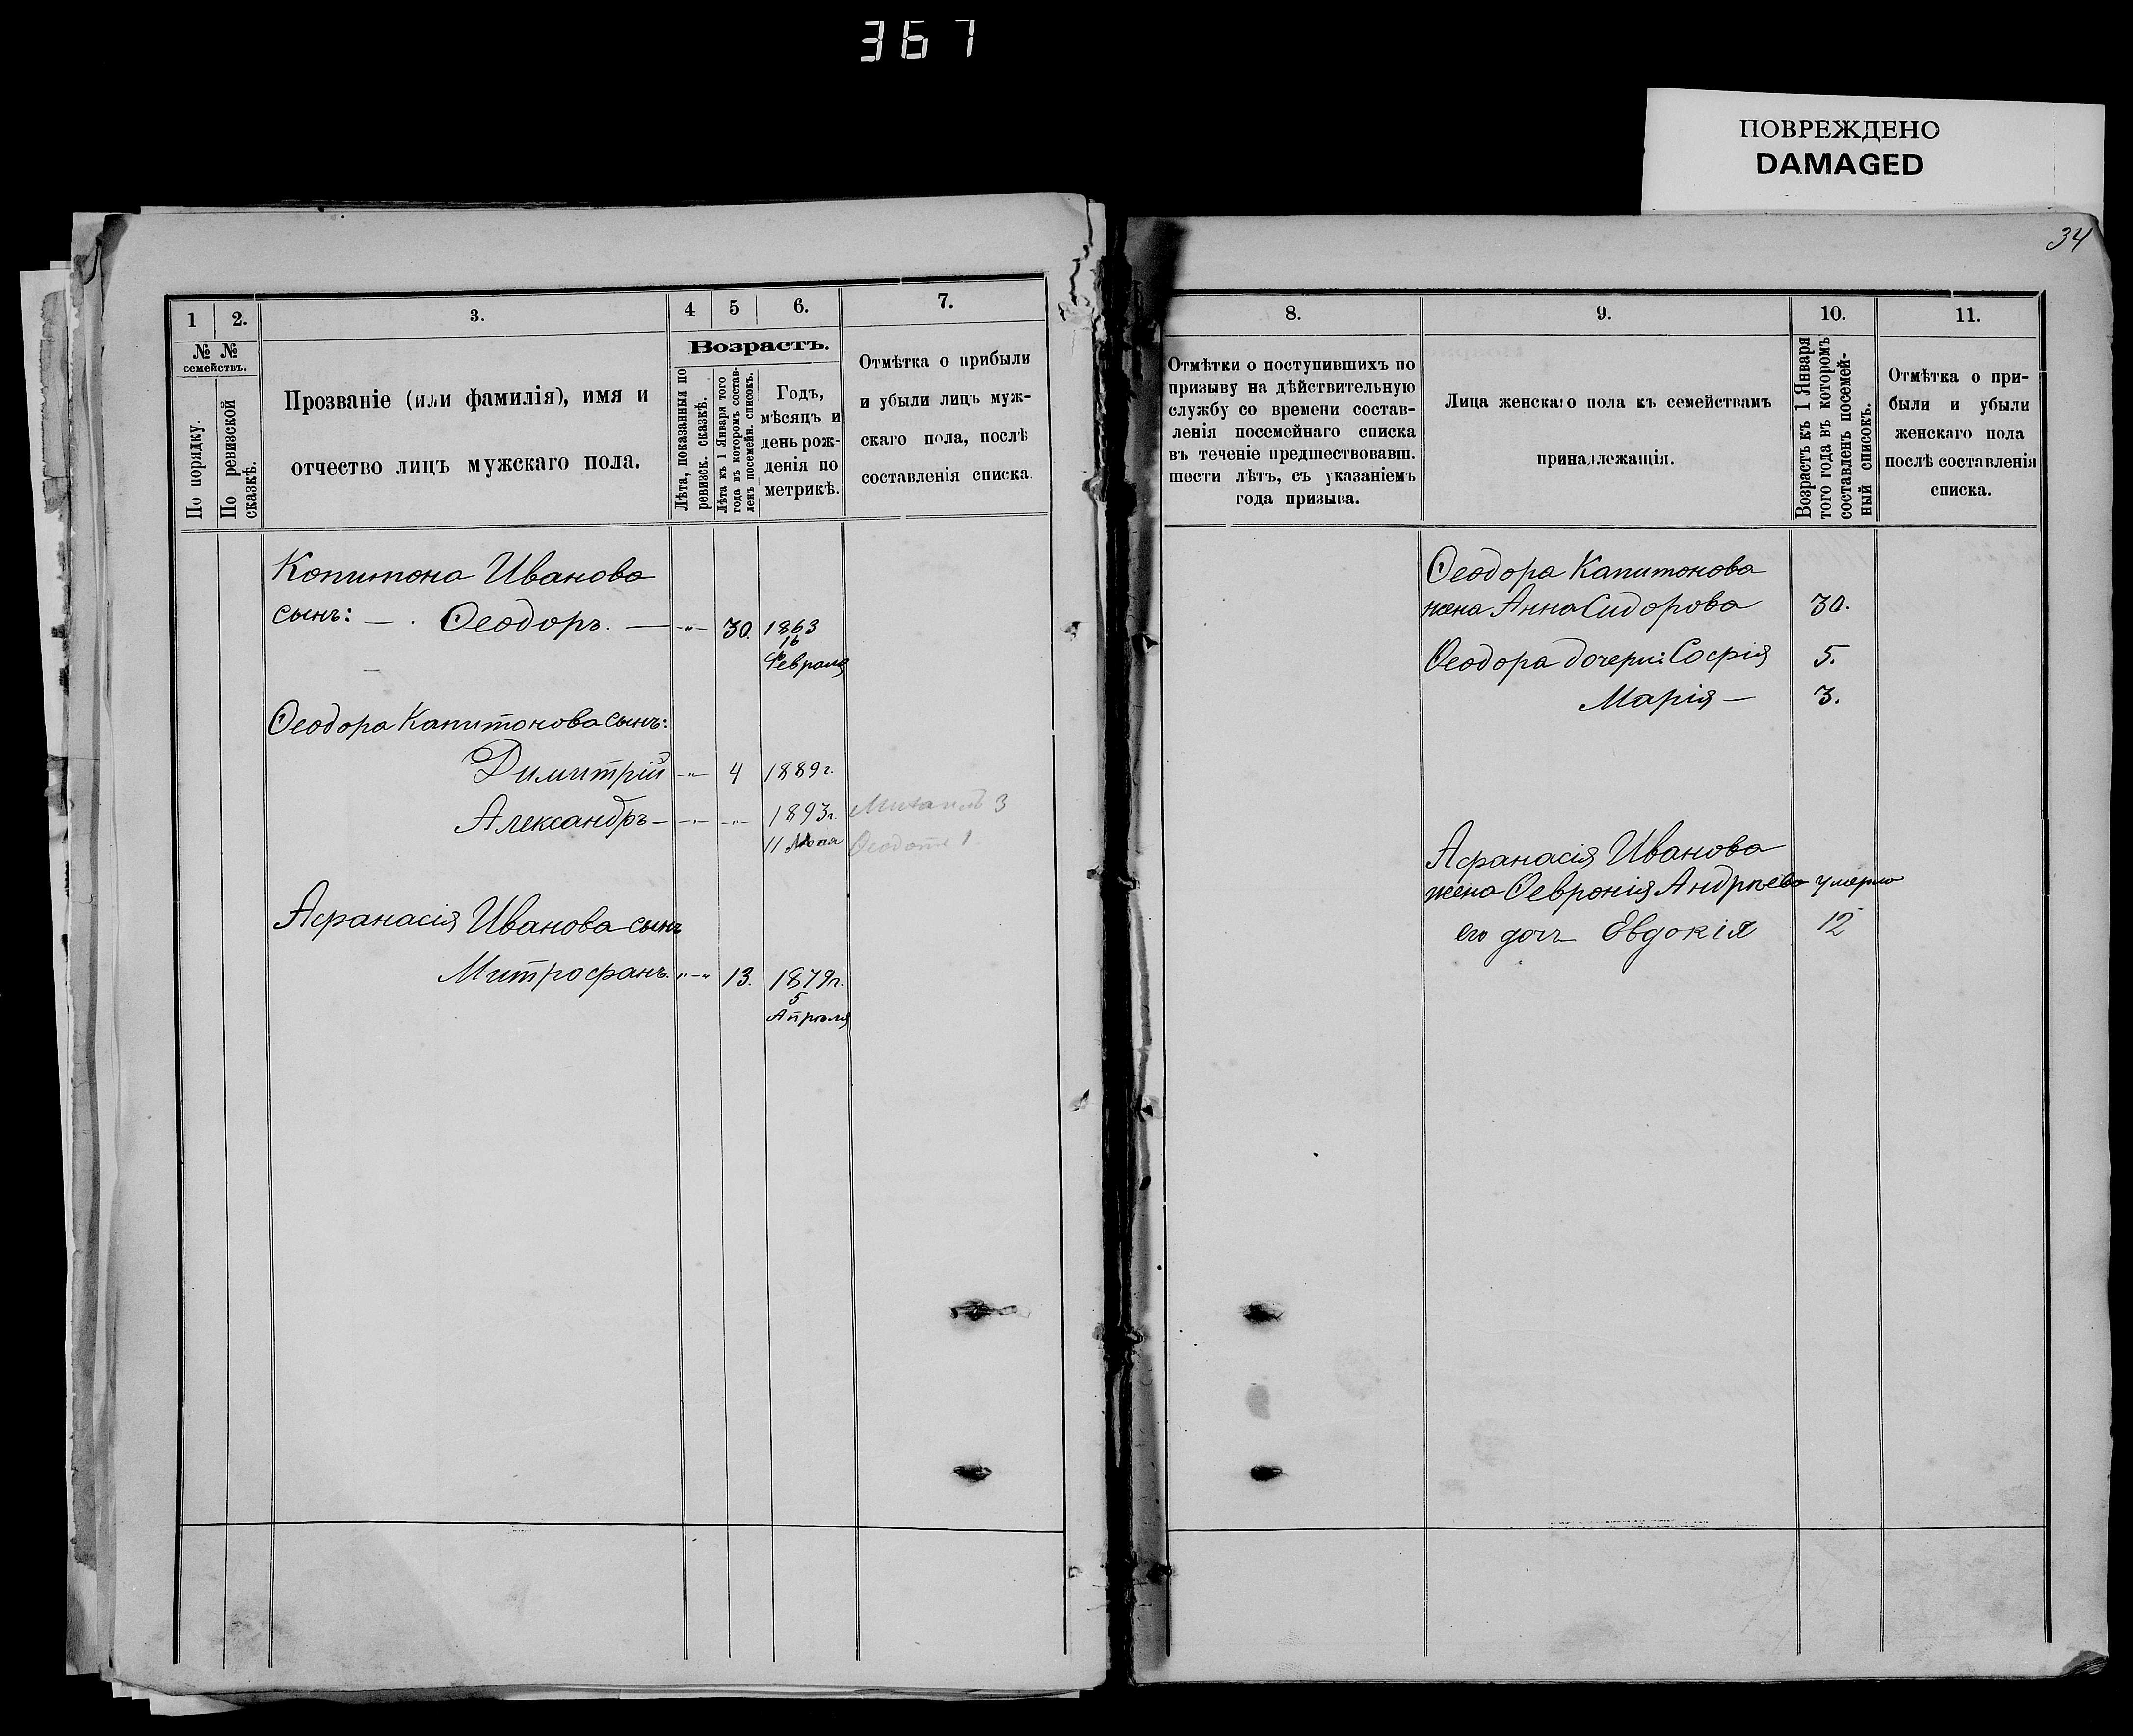 367
ПОВРЕЖДЕНО
DAMAGED
34
1
2.
3.
4
5
6.
7.
№ №
семействъ.
По порядку.
По ревизской
сказкѣ.
Прозваніе (или фамилія), имя и
отчество лицъ мужскаго пола.
Возрастъ.
Лѣта, показанныя по
ревизск. сказкѣ.
Лѣта къ 1 Января того
года въ которомъ состав-
ленъ посемейн. списокъ.
Годъ,
мѣсяцъ и
день рож-
денія по
метрикѣ.
Отмѣтка о прибыли
и убыли лицъ муж-
скаго пола, послѣ
составленія списка.
Капитона Иванова
сынъ: — . Ѳеодоръ. — -„- 30. 1863
16
Февраля
Ѳеодора Капитонова сынъ:
Димитрій -„- 4 1889г.
Александръ — -„- -„- 1893г. Михаилъ 3
11 Іюня Ѳеодотъ 1.
Афанасія Иванова сынъ
Митрофанъ. „-„ 13. 1879г.
5
Апрѣля
8.
9.
10.
11.
Отмѣтки о поступившихъ по
призыву на дѣйствительную
службу со времени состав-
ленія посемейнаго списка
въ теченіе предшествовавш.
шести лѣтъ, съ указаніемъ
года призыва.
Лица женскаго пола къ семействамъ
принадлежащія.
Возрастъ къ 1 Января
того года въ которомъ
составленъ посемей-
ный списокъ.
Отмѣтка о при-
были и убыли
женскаго пола
послѣ составленія
списка.
Ѳеодора Капитонова
жена Анна Сидорова 30.
Ѳеодора дочери: Софія 5.
Марія — 3.
Афанасія Иванова
жена Ѳевронія Андрѣева умерла
его дочь Евдокія 12